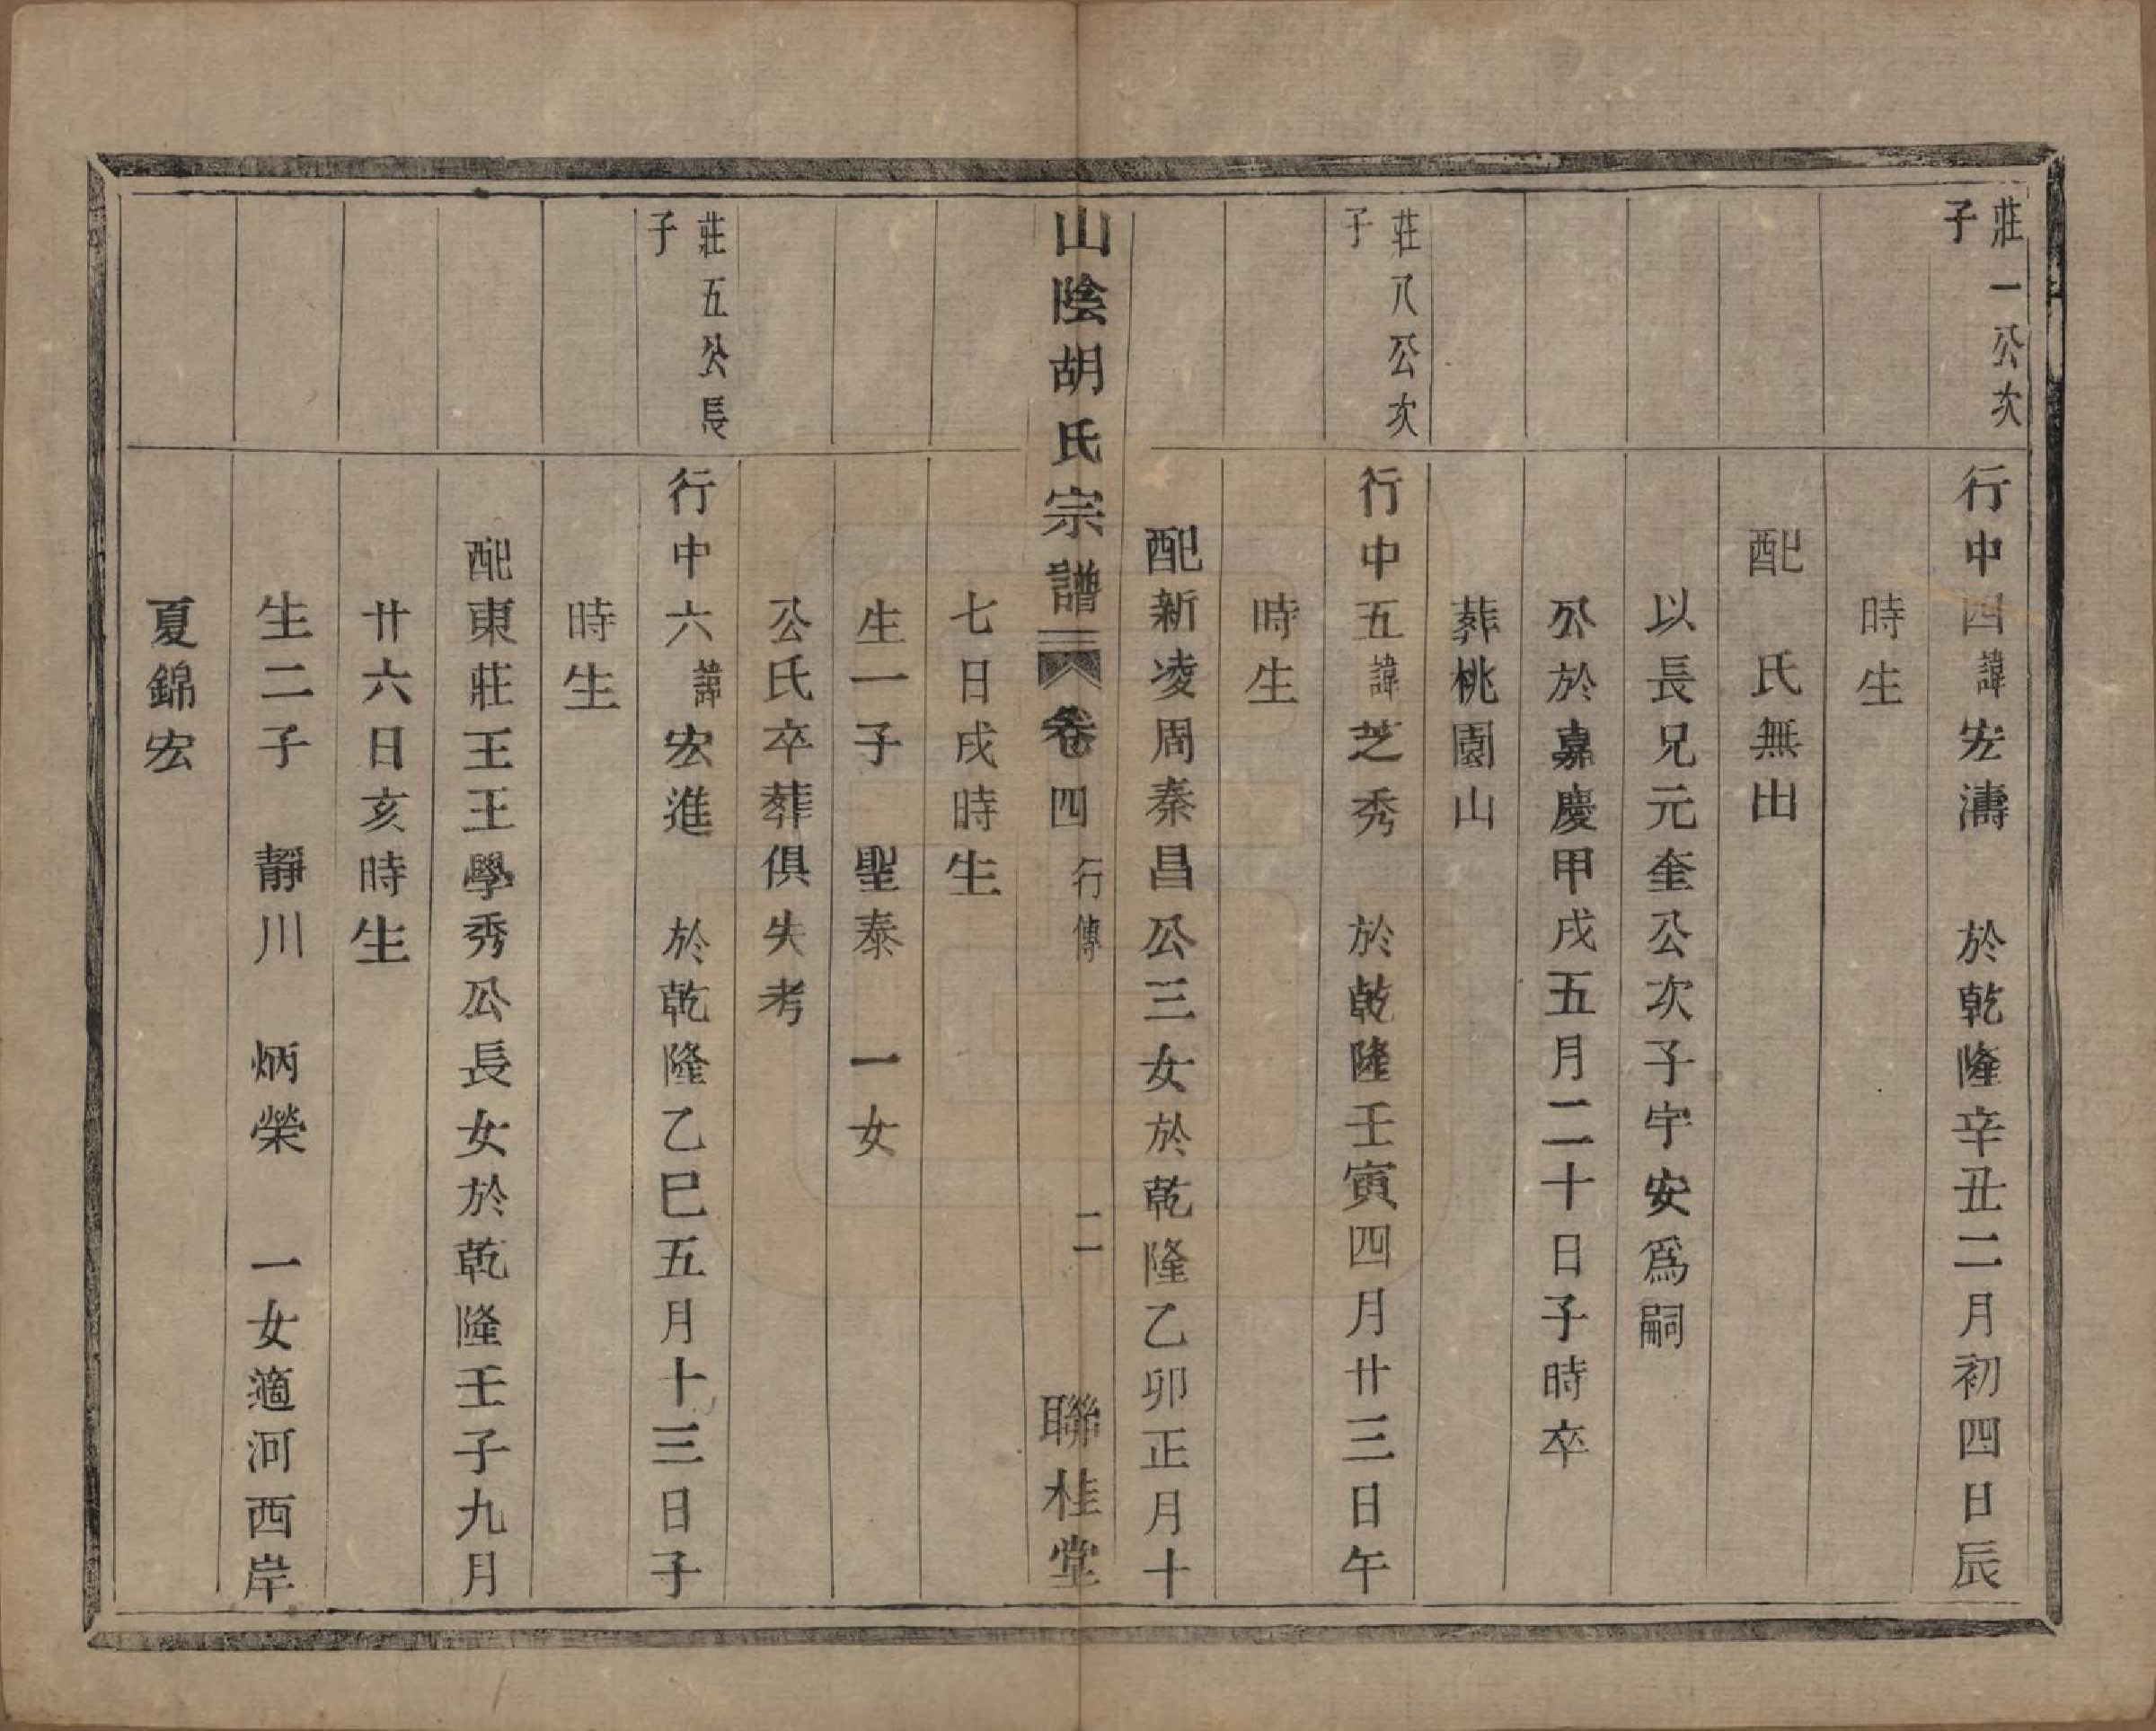 莊一公次
子
行中四諱宏濤　於乾隆辛丑二月初四日辰
時生
配　氏無出
以長兄元奎公次子宇安爲嗣
公於嘉慶甲戌五月二十日子時卒
葬桃園山
莊八公次
子
行中五諱芝秀　於乾隆壬寅四月廿三日午
時生
配新凌周秦昌公三女於乾隆乙卯正月十
山陰胡氏宗譜　卷四　行傳　二　聯桂堂
七日戌時生
生一子　聖泰　一女
公氏卒葬俱失考
莊五公長
子
行中六諱宏進　於乾隆乙巳五月十三日子
時生
配東莊王王學秀公長女於乾隆壬子九月
廿六日亥時生
生二子　靜川　炳榮　一女適河西岸
夏錦宏